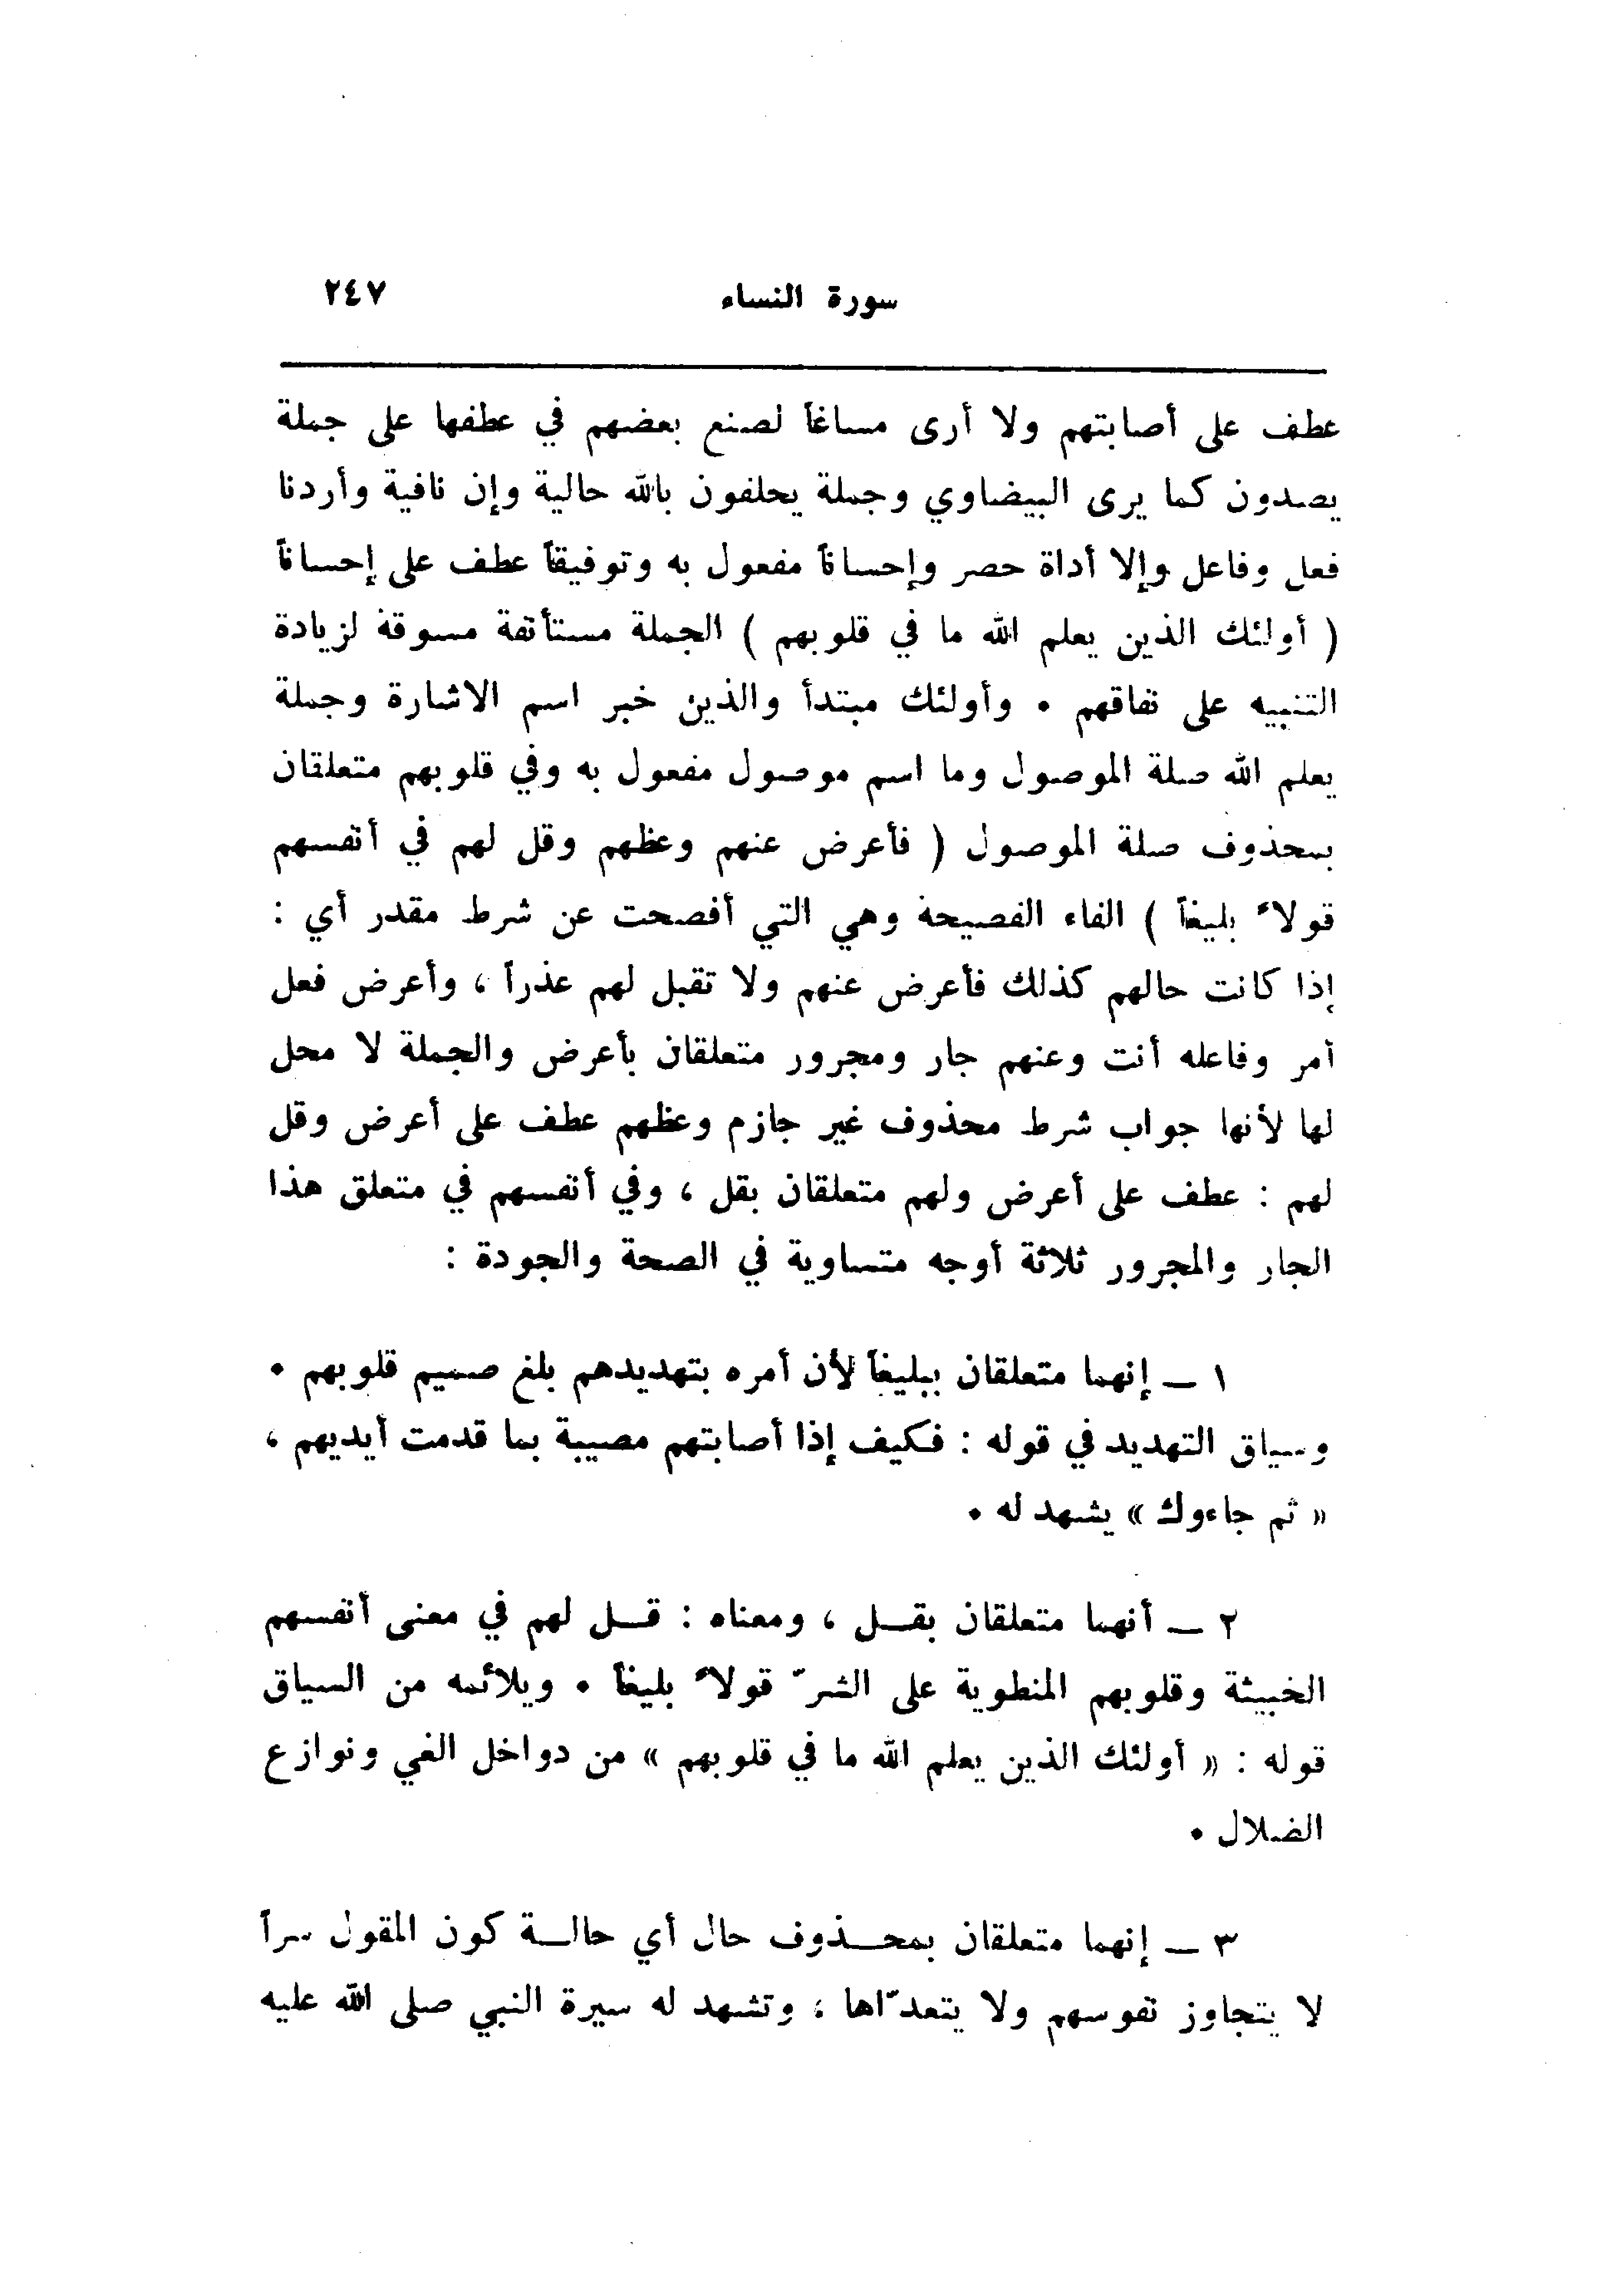 سورة النساء ٢٤٧
عطف على أصابتهم ولا أرى مساغاً لصنع بعضهم في عطفها على جملة
يصدون كما يرى البيضاوي وجملة يحلفون بالله حالية وإن نافية وأردنا
فعل وفاعل وإلا أداة حصر وإحساناً مفعول به وتوفيقاً عطف على إحساناً
( أولئك الذين يعلم الله ما في قلوبهم ) الجملة مستأنفة مسوقة لزيادة
التنبيه على نفاقهم ٠ وأولئك مبتدأ والذين خبر اسم الاشارة وجملة
يعلم الله صلة الموصول وما اسم موصول مفعول به وفي قلوبهم متعلقان
بمحذوف صلة الموصول ( فأعرض عنهم وعظهم وقل لهم في أنفسهم
قولاً بليغاً ) الفاء الفصيحة وهي التي أفصحت عن شرط مقدر أي :
إذا كانت حالهم كذلك فأعرض عنهم ولا تقبل لهم عذراً ، وأعرض فعل
أمر وفاعله أنت وعنهم جار ومجرور متعلقان بأعرض والجملة لا محل
لها لأنها جواب شرط محذوف غير جازم وعظهم عطف على أعرض وقل
لهم : عطف على أعرض ولهم متعلقان بقل ، وفي أنفسهم في متعلق هذا
الجار والمجرور ثلاثة أوجه متساوية في الصحة والجودة :
١ ــ إنهما متعلقان ببليغاً لأن أمره بتهديدهم بلغ صميم قلوبهم ٠
وسياق التهديد في قوله : فكيف إذا أصابتهم مصيبة بما قدمت أيديهم ،
« ثم جاءوك » يشهد له ٠
٢ ــ أنهما متعلقان بقــل ، ومعناه : قــل لهم في معنى أنفسهم
الخبيثة وقلوبهم المنطوية على الشرّ قولاً بليغاً ٠ ويلائمه من السياق
قوله : « أولئك الذين يعلم الله ما في قلوبهم » من دواخل الغي ونوازع
الضلال ٠
٣ ــ إنهما متعلقان بمحــذوف حال أي حالــة كون المقول سراً
لا يتجاوز نفوسهم ولا يتعدّاها ، وتشهد له سيرة النبي صلى الله عليه